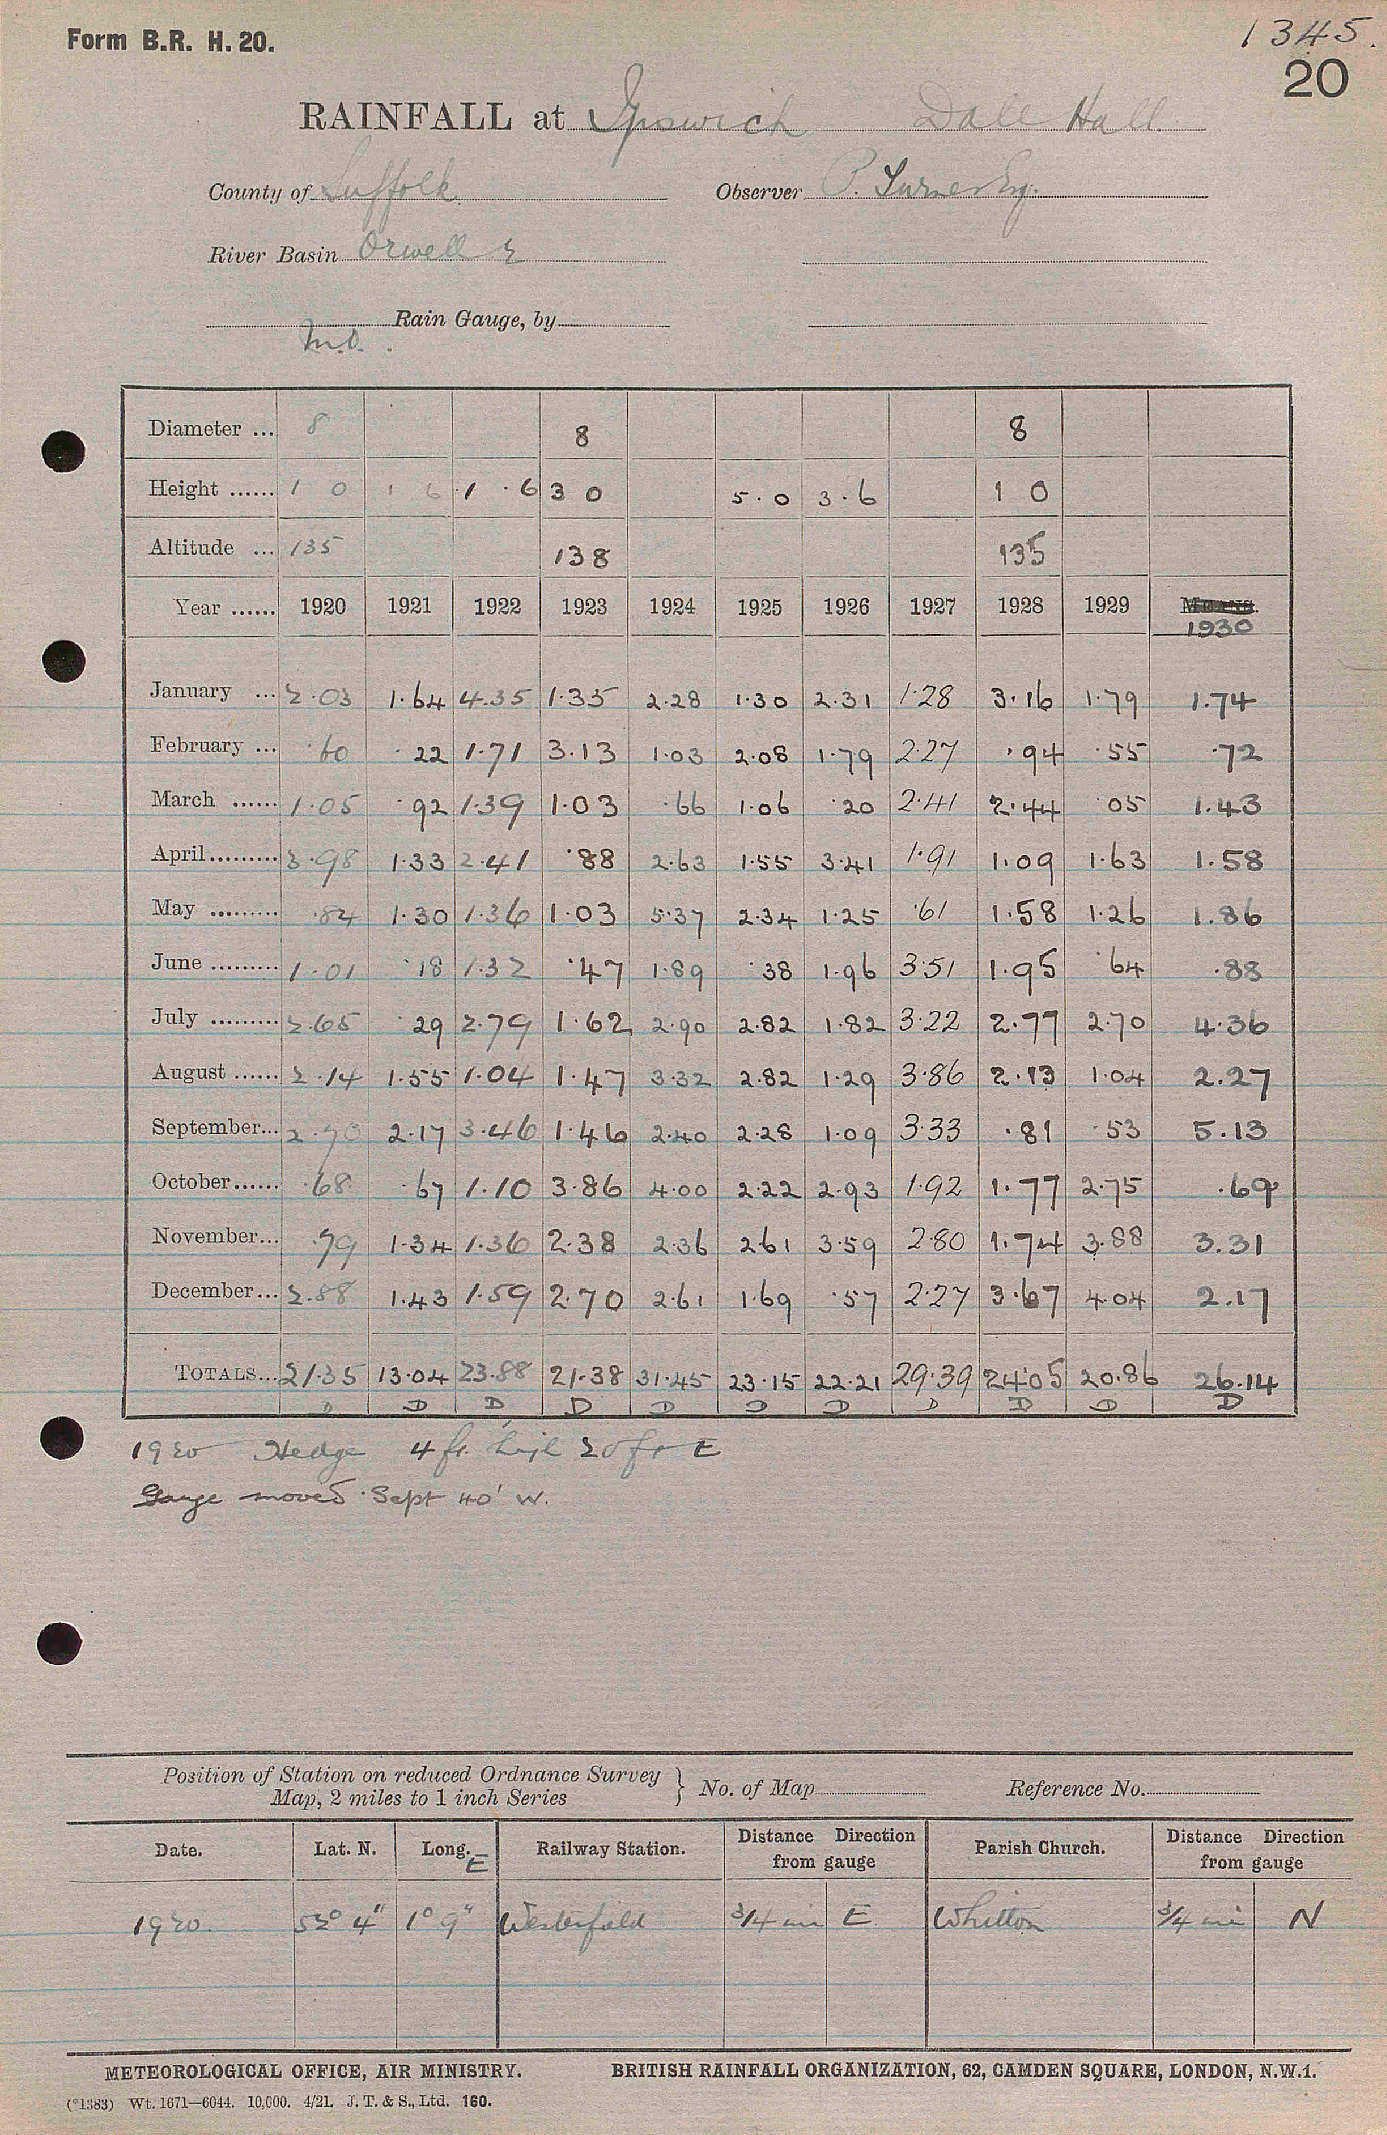 Form B.R. H. 20.
1345.
20
RAINFALL at Ipswich Dale Hall.
County of Suffolk
Observer P. Turner Esq.
River Basin Orwell
Rain Gauge, by
M.O.
Diameter ... 8 8 8
Height ...... 1 0 1 6 1 . 6 3 0 5 . 0 3 . 6 1 0
Altitude ... 135 138 135
Year ...... 1920 1921 1922 1923 1924 1925 1926 1927 1928 1929 1930
January ... 2.03 1.64 4.35 1.35 2.28 1.30 2.31 1.28 3.16 1.79 1.74
February ... .60 .22 1.71 3.13 1.03 2.08 1.79 2.27 .94 .55 .72
March ...... 1.05 .92 1.39 1.03 .66 1.06 .20 2.41 2.44 .05 1.43
April ......... 3.98 1.33 2.41 .88 2.63 1.55 3.41 1.91 1.09 1.63 1.58
May ......... .84 1.30 1.36 1.03 5.37 2.34 1.25 .61 1.58 1.26 1.86
June ......... 1.01 .18 1.32 .47 1.89 .38 1.96 3.51 1.95 .64 .88
July ......... 2.65 .29 2.79 1.62 2.90 2.82 1.82 3.22 2.77 2.70 4.36
August ...... 2.14 1.55 1.04 1.47 3.32 2.82 1.29 3.86 2.13 1.04 2.27
September... 2.70 2.17 3.46 1.46 2.40 2.28 1.09 3.33 .81 .53 5.13
October...... .68 .67 1.10 3.86 4.00 2.22 2.93 1.92 1.77 2.75 .69
November... .79 1.34 1.36 2.38 2.36 2.61 3.59 2.80 1.74 3.88 3.31
December... 2.88 1.43 1.59 2.70 2.61 1.69 .57 2.27 3.67 4.04 2.17
TOTALS... 21.35 13.04 23.88 21.38 31.45 23.15 22.21 29.39 24.05 20.86 26.14
D D D D D D D D D D D
1920 Hedge 4 ft. high 20 ft E
Gauge moved Sept 40' W.
Position of Station on reduced Ordnance Survey
Map, 2 miles to 1 inch Series } No. of Map Reference No.
Date. Lat. N. Long. E Railway Station. Distance Direction from gauge Parish Church. Distance Direction from gauge
1920. 52° 4" 1° 9" Westerfield 3/4 mi E Whitton 3/4 mi N
METEOROLOGICAL OFFICE, AIR MINISTRY. BRITISH RAINFALL ORGANIZATION, 62, CAMDEN SQUARE, LONDON, N.W.1.
(*1383) Wt. 1671—6044. 10,000. 4/21. J. T. & S., Ltd. 160.